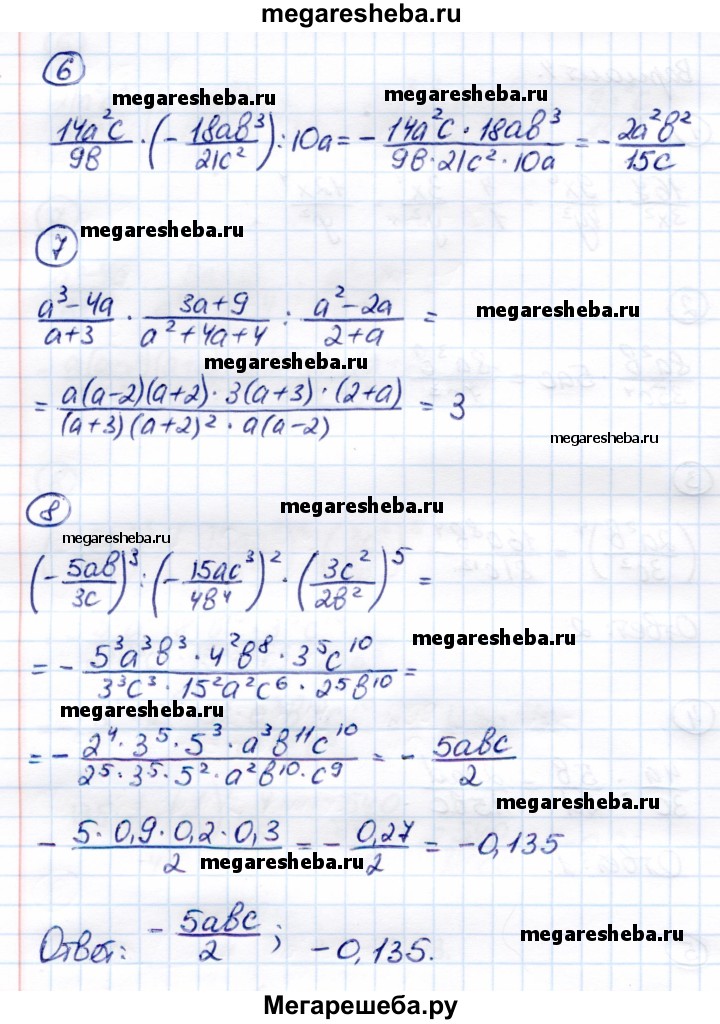 megaresheba.ru
6
megaresheba.ru megaresheba.ru
14a²c/9в · (−18aв³/21c²) : 10a = −14a²c · 18aв³/9в · 21c² · 10a = −2a²в²/15c
7 megaresheba.ru
a³−4a/a+3 · 3a+9/a²+4a+4 : a²−2a/2+a =
megaresheba.ru
megaresheba.ru
= a(a−2)(a+2) · 3(a+3) · (2+a)/(a+3)(a+2)² · a(a−2) = 3
megaresheba.ru
8 megaresheba.ru
megaresheba.ru
(−5aв/3c)³ : (−15ac³/4в⁴)² · (3c²/2в²)⁵ =
megaresheba.ru
= −5³a³в³ · 4²в⁸ · 3⁵c¹⁰/3³c³ · 15²a²c⁶ · 2⁵в¹⁰ =
megaresheba.ru
= −2⁴ · 3⁵ · 5³ · a³в¹¹c¹⁰/2⁵ · 3⁵ · 5² · a²в¹⁰ · c⁹ = −5aвc/2
megaresheba.ru
−5 · 0,9 · 0,2 · 0,3/2 = −0,27/2 = −0,135
megaresheba.ru
Ответ: −5aвc/2; −0,135.
megaresheba.ru
Мегарешеба.ру